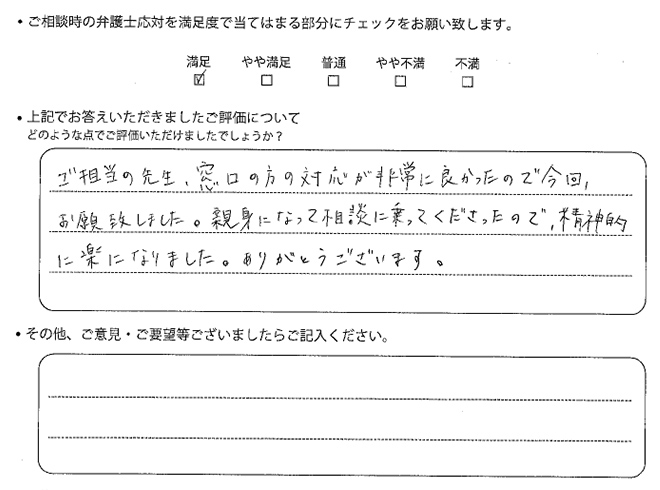 ・ご相談時の弁護士応対を満足度で当てはまる部分にチェックをお願い致します。
満足 やや満足 普通 やや不満 不満
☑ □ □ □ □
・上記でお答えいただきましたご評価について
どのような点でご評価いただけましたでしょうか？
ご相当の先生、窓口の方の対応が非常に良かったので今回、
お願致しました。親身になって相談に乗ってくださったので、精神的
に楽になりました。ありがとうございます。
・その他、ご意見・ご要望等ございましたらご記入ください。